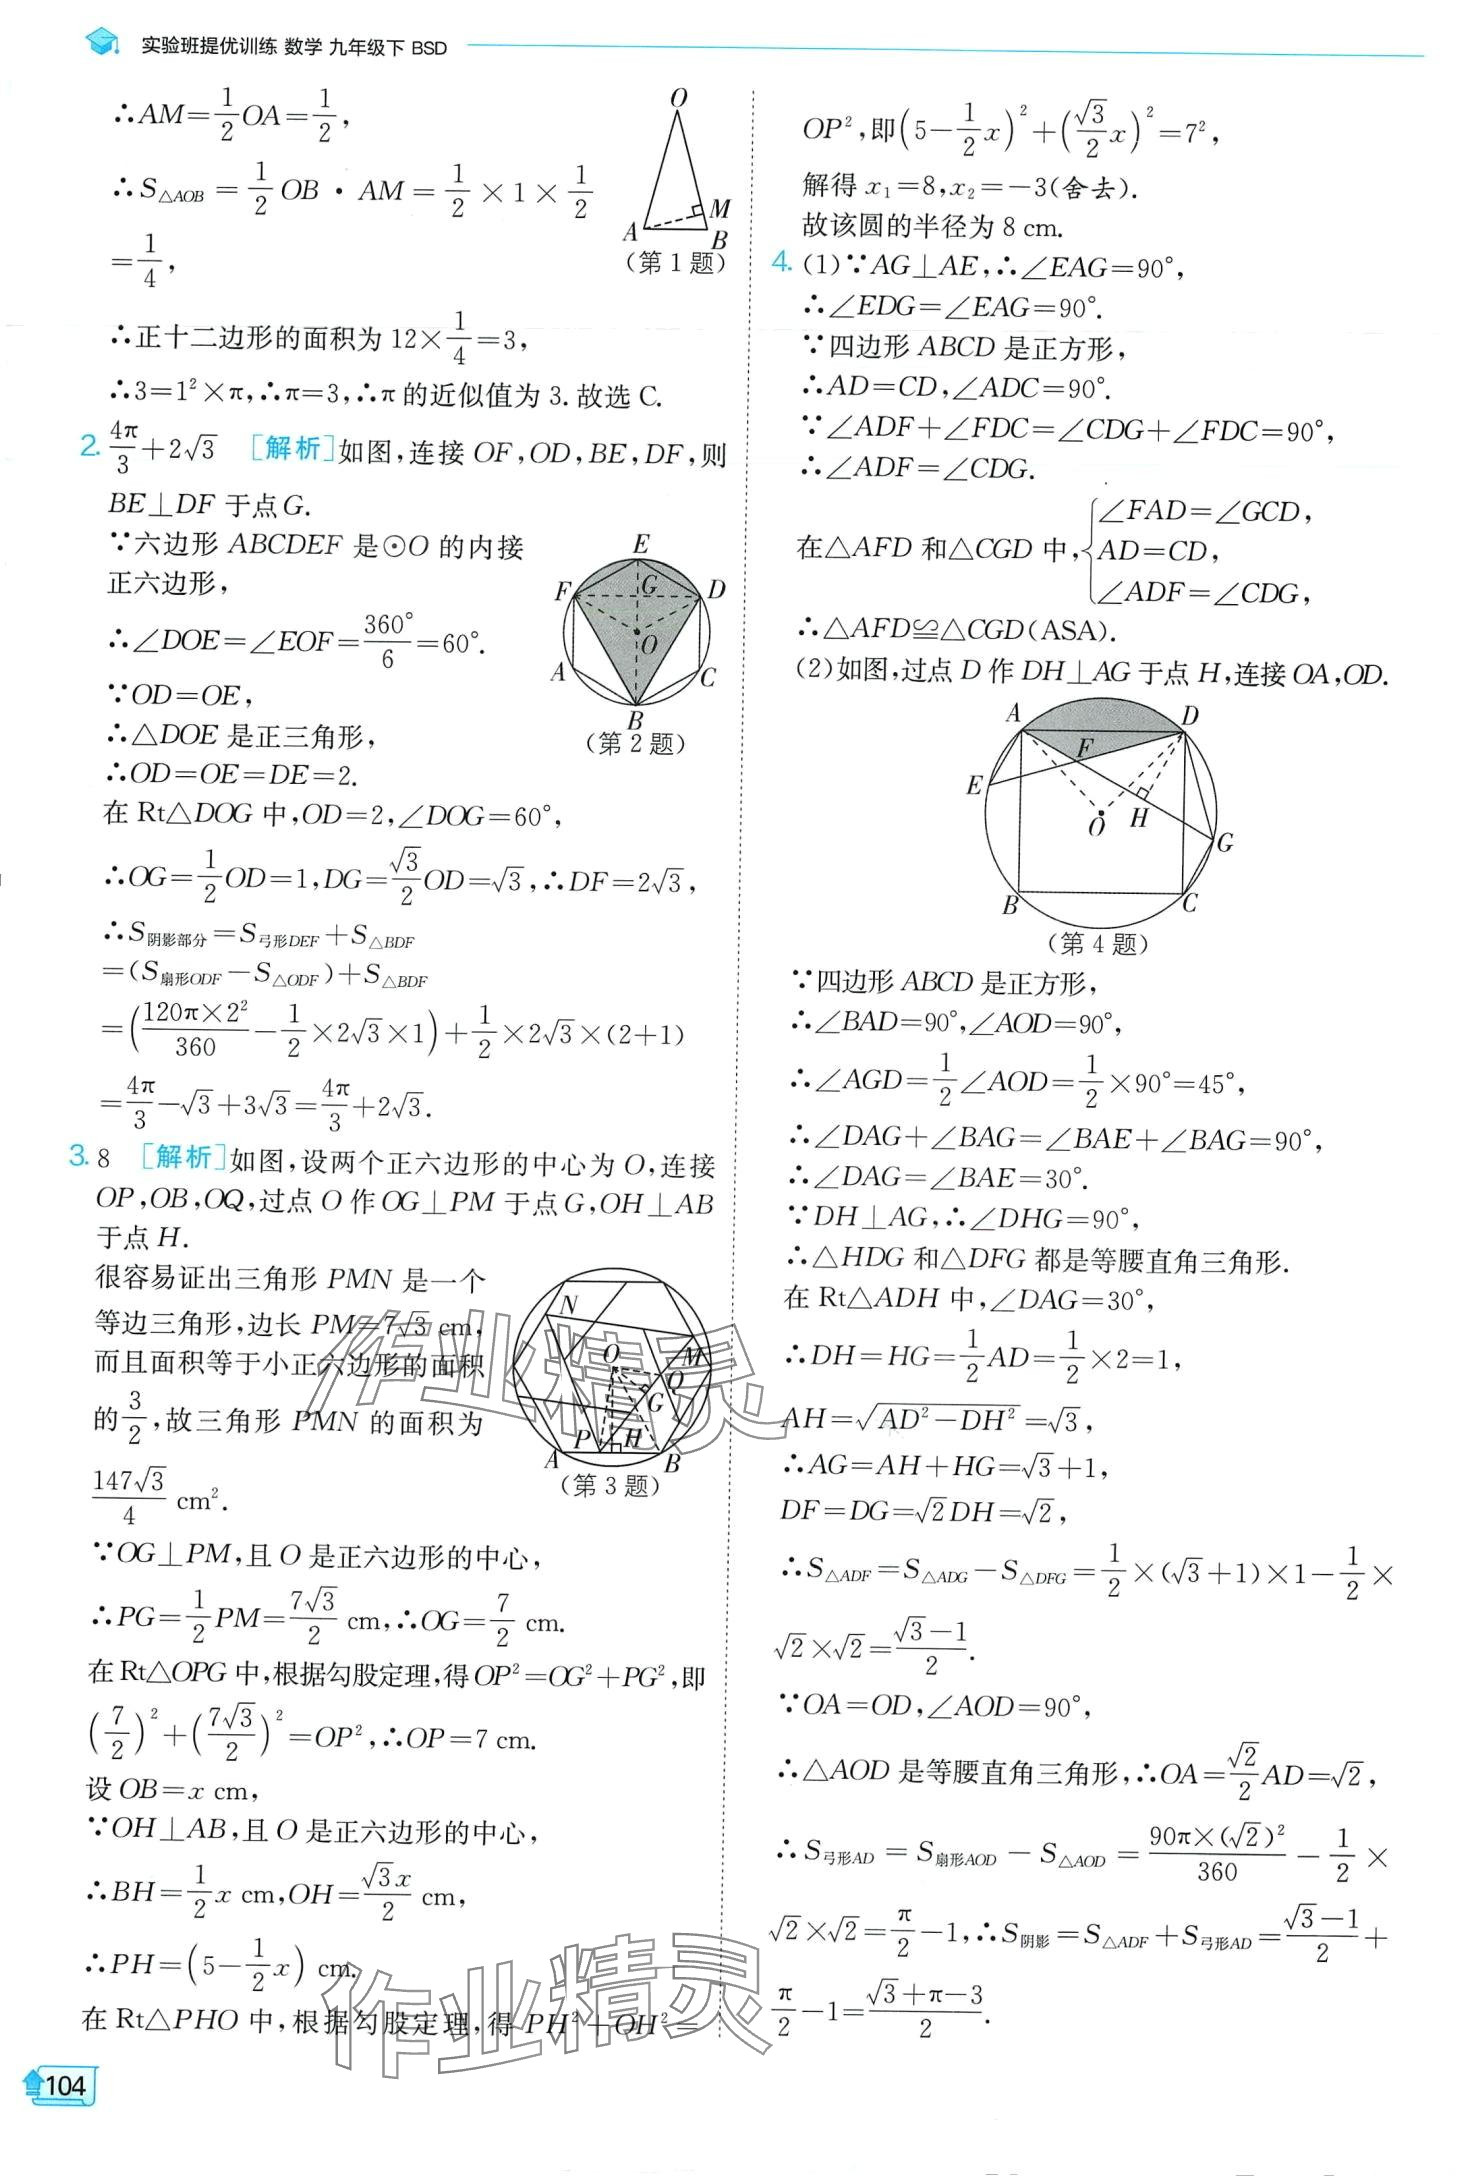 实验班提优训练 数学 九年级下 BSD
∴AM=1/2OA=1/2,
∴S△AOB=1/2OB·AM=1/2×1×1/2
=1/4,
O
M
A
B
(第1题)
∴正十二边形的面积为12×1/4=3,
∴3=1²×π,∴π=3,∴π的近似值为3.故选C.
2. 4π/3+2√3 [解析]如图,连接OF,OD,BE,DF,则
BE⊥DF于点G.
∵六边形ABCDEF是⊙O的内接
正六边形,
∴∠DOE=∠EOF=360°/6=60°.
∵OD=OE,
∴△DOE是正三角形,
∴OD=OE=DE=2.
E
F
G
D
O
A
C
B
(第2题)
在Rt△DOG中,OD=2,∠DOG=60°,
∴OG=1/2OD=1,DG=√3/2OD=√3,∴DF=2√3,
∴S阴影部分=S弓形DEF+S△BDF
=(S扇形ODF-S△ODF)+S△BDF
=(120π×2²/360-1/2×2√3×1)+1/2×2√3×(2+1)
=4π/3-√3+3√3=4π/3+2√3.
3. 8 [解析]如图,设两个正六边形的中心为O,连接
OP,OB,OQ,过点O作OG⊥PM于点G,OH⊥AB
于点H.
很容易证出三角形PMN是一个
等边三角形,边长PM=7√3 cm,
而且面积等于小正六边形的面积
的3/2,故三角形PMN的面积为
147√3/4 cm².
N
O
M
Q
G
P
H
A
B
(第3题)
∵OG⊥PM,且O是正六边形的中心,
∴PG=1/2PM=7√3/2 cm,∴OG=7/2 cm.
在Rt△OPG中,根据勾股定理,得OP²=OG²+PG²,即
(7/2)²+(7√3/2)²=OP²,∴OP=7 cm.
设OB=x cm,
∵OH⊥AB,且O是正六边形的中心,
∴BH=1/2x cm,OH=√3x/2 cm,
∴PH=(5-1/2x) cm.
在Rt△PHO中,根据勾股定理,得PH²+OH²=
OP²,即(5-1/2x)²+(√3/2x)²=7²,
解得x₁=8,x₂=-3(舍去).
故该圆的半径为8 cm.
4. (1)∵AG⊥AE,∴∠EAG=90°,
∴∠EDG=∠EAG=90°.
∵四边形ABCD是正方形,
∴AD=CD,∠ADC=90°.
∵∠ADF+∠FDC=∠CDG+∠FDC=90°,
∴∠ADF=∠CDG.
在△AFD和△CGD中,{∠FAD=∠GCD,
AD=CD,
∠ADF=∠CDG,
∴△AFD≌△CGD(ASA).
(2)如图,过点D作DH⊥AG于点H,连接OA,OD.
A
D
F
E
O
H
G
B
C
(第4题)
∵四边形ABCD是正方形,
∴∠BAD=90°,∠AOD=90°,
∴∠AGD=1/2∠AOD=1/2×90°=45°,
∴∠DAG+∠BAG=∠BAE+∠BAG=90°,
∴∠DAG=∠BAE=30°.
∵DH⊥AG,∴∠DHG=90°,
∴△HDG和△DFG都是等腰直角三角形.
在Rt△ADH中,∠DAG=30°,
∴DH=HG=1/2AD=1/2×2=1,
AH=√(AD²-DH²)=√3,
∴AG=AH+HG=√3+1,
DF=DG=√2DH=√2,
∴S△ADF=S△ADG-S△DFG=1/2×(√3+1)×1-1/2×
√2×√2=(√3-1)/2.
∵OA=OD,∠AOD=90°,
∴△AOD是等腰直角三角形,∴OA=√2/2AD=√2,
∴S弓形AD=S扇形AOD-S△AOD=90π×(√2)²/360-1/2×
√2×√2=π/2-1,∴S阴影=S△ADF+S弓形AD=(√3-1)/2+
π/2-1=(√3+π-3)/2.
作业精灵
作业精灵
104